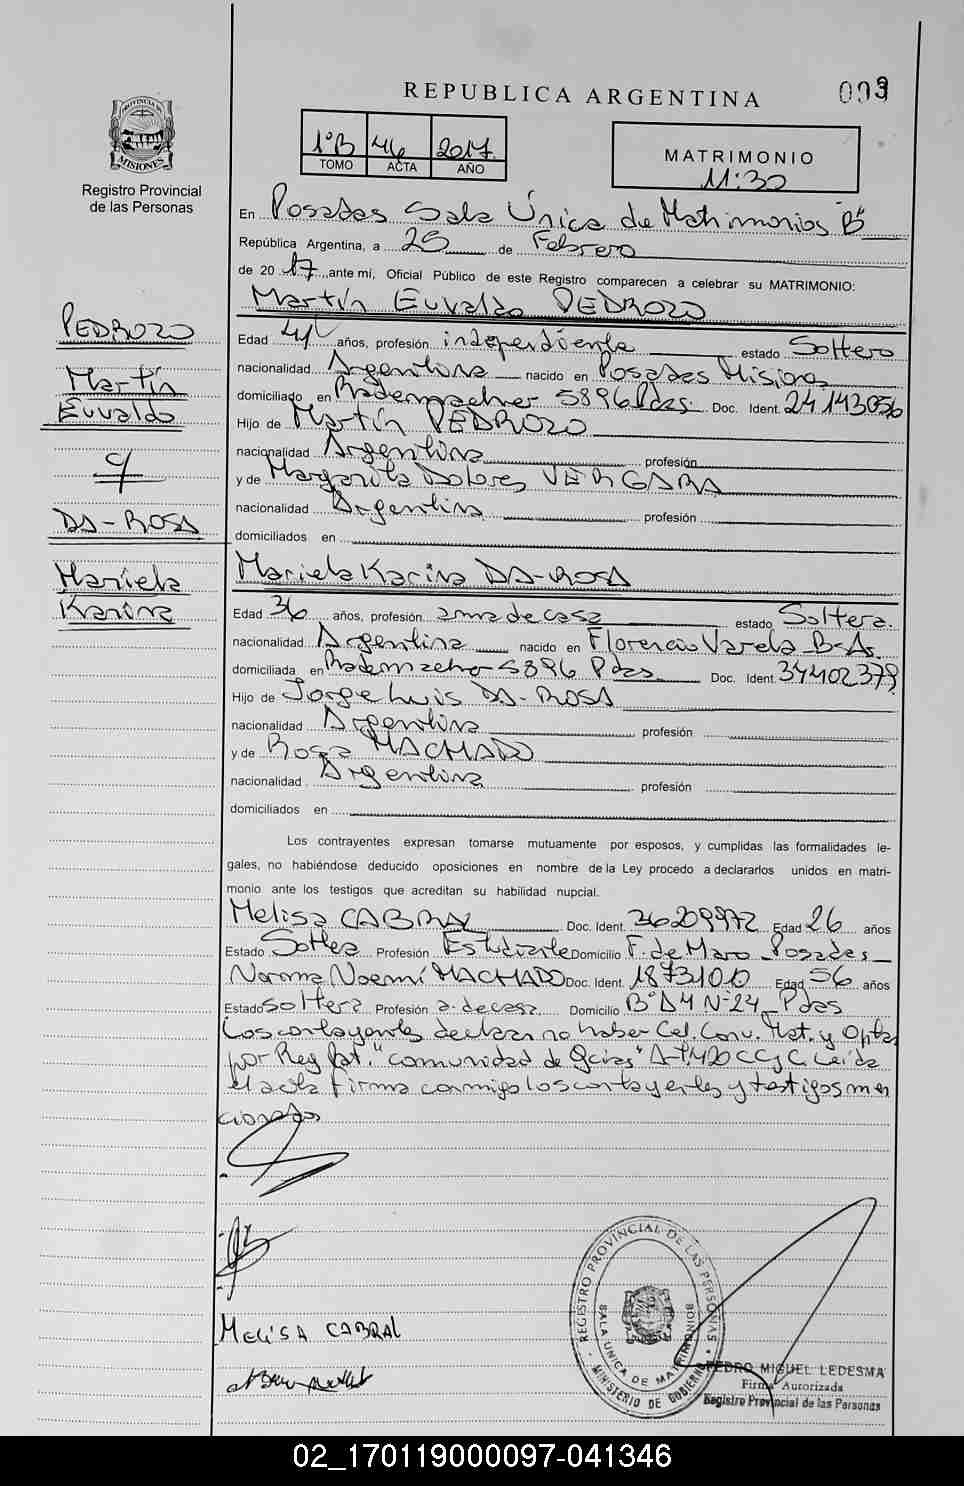 REPUBLICA ARGENTINA
009
PROVINCIA DE
MISIONES
Registro Provincial
de las Personas
1ºB 46 2017
TOMO ACTA AÑO
MATRIMONIO
11:30
En Posadas Sala Única de Matrimonios "B"
República Argentina, a 25 de Febrero
de 20 17 ante mí, Oficial Público de este Registro comparecen a celebrar su MATRIMONIO:
Martín Euvaldo PEDROZO
PEDROZO
Martín
Euvaldo
c/
DA-ROSA
Mariela
Karina
Edad años, profesión independiente estado Soltero
nacionalidad Argentina nacido en Posadas Misiones
domiciliado en Rademacher 5896 Pdas. Doc. Ident. 24143056
Hijo de Martín PEDROZO
nacionalidad Argentina profesión
y de Margarita Dolores VERGARA
nacionalidad Argentina profesión
domiciliados en
Mariela Karina DA-ROSA
Edad 36 años, profesión ama de casa estado Soltera.
nacionalidad Argentina nacido en Florencio Varela Bs.As.
domiciliada en Rademacher 5896 Pdas Doc. Ident. 34402379
Hijo de Jorge Luis DA-ROSA
nacionalidad Argentina profesión
y de Rosa MACHADO
nacionalidad Argentina profesión
domiciliados en
Los contrayentes expresan tomarse mutuamente por esposos, y cumplidas las formalidades le-
gales, no habiéndose deducido oposiciones en nombre de la Ley procedo a declararlos unidos en matri-
monio ante los testigos que acreditan su habilidad nupcial.
Melisa CABRAL Doc. Ident. 36209972 Edad 26 años
Estado Soltera Profesión Estudiante Domicilio F. de Haro Posadas
Norma Noemí MACHADO Doc. Ident. 18731010 Edad 56 años
Estado soltera Profesión a. de casa Domicilio Bº D4 Nº 24 Pdas
Los contrayentes declaran no haber Cel. Conv. Mat. y Optan
por Reg. Pat. "comunidad de Gcias" Art. 420 CCyC. Leída
el acta firma conmigo los contrayentes y testigos men
cionados
MELISA CABRAL
REGISTRO PROVINCIAL DE LAS PERSONAS
SALA UNICA DE MATRIMONIOS
MINISTERIO DE GOBIERNO
PEDRO MIGUEL LEDESMA
Firma Autorizada
Registro Provincial de las Personas
02_170119000097-041346